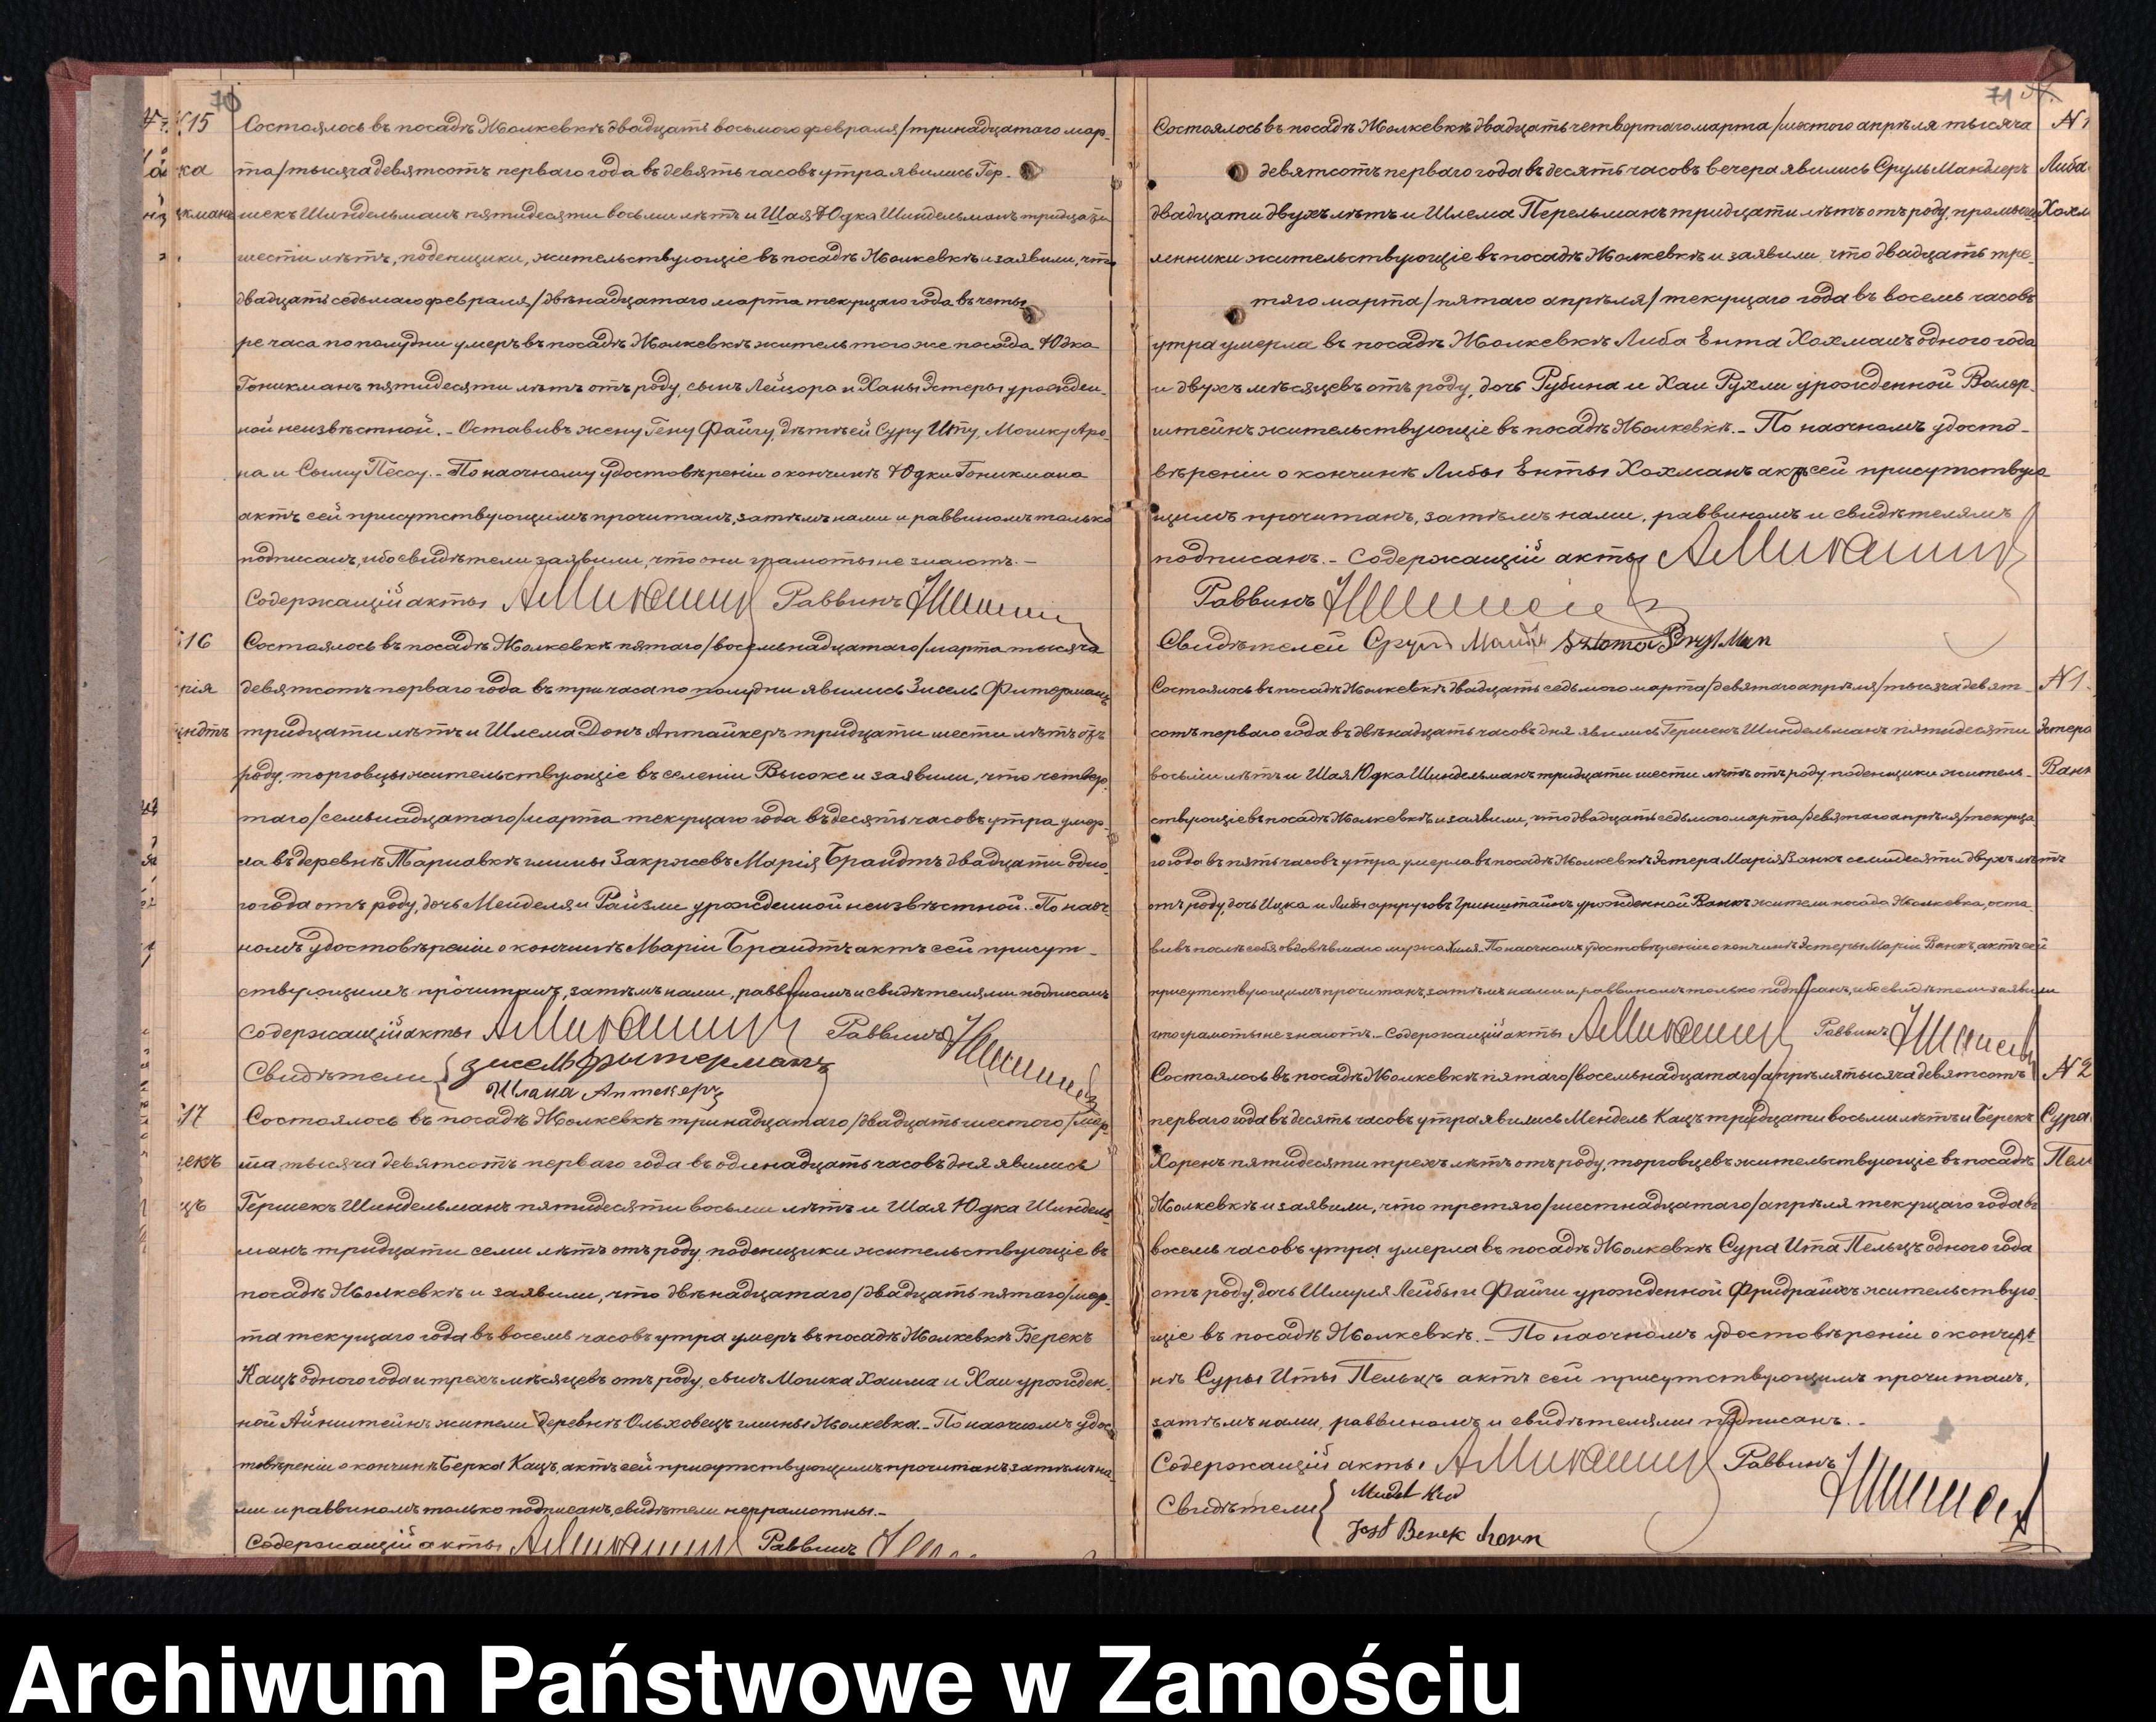 70
№15
Состоялось въ посадѣ Жолкевкѣ двадцать восьмого февраля/тринадцатаго мар-
ка
та/тысяча девятсотъ перваго года въ девять часовъ утра явились Гер-
икманъ
шекъ Шиндельманъ пятидесяти восьми лѣтъ и Шая Юдка Шиндельманъ тридцати
шести лѣтъ, поденщики, жительствующіе въ посадѣ Жолкевкѣ и заявили, что
двадцать седьмаго февраля/двѣнадцатаго марта текущаго года въ четы-
ре часа по полудни умеръ въ посадѣ Жолкевкѣ житель того же посада Юдка
Гоникманъ пятидесяти лѣтъ отъ роду, сынъ Лейзора и Ханы Эстеры урожден-
ной неизвѣстной. - Оставивъ жену Гену Файгу, дѣтѣей Суру Иту, Мошку Аро-
на и Сыму Пессу. - По наочному удостовѣреніи о кончинѣ Юдки Гоникмана
актъ сей присутствующимъ прочитанъ, затѣмъ нами и раввиномъ только
подписанъ, ибо свидѣтели заявили, что они грамоты не знаютъ. -
Содержащій акты Раввинъ
16
Состоялось въ посадѣ Жолкевкѣ пятаго/восемьнадцатаго/марта тысяча
рія
девятсотъ перваго года въ три часа по полудни явились Зисель Фитерманъ
ндтъ
тридцати лѣтъ и Шлема Донъ Аптайкеръ тридцати шести лѣтъ отъ
роду, торговцы жительствующіе въ селеніи Высоке и заявили, что четвер-
таго/семьнадцатаго/марта текущаго года въ десять часовъ утра умер-
ла въ деревнѣ Тарнавкѣ гмины Закржевъ Марія Брандтъ двадцати одно-
го года отъ роду, дочь Менделя и Райзли урожденной неизвѣстной. По наоч-
номъ удостовѣреніи о кончинѣ Маріи Брандтъ актъ сей присут-
ствующимъ прочитанъ, затѣмъ нами, раввиномъ и свидѣтелями подписанъ
Содержащій акты Раввинъ
Свидѣтели { Зисель Фитерманъ
Шлама Аптекеръ
17
Состоялось въ посадѣ Жолкевкѣ тринадцатаго/двадцать шестого/мар-
екъ
та тысяча девятсотъ перваго года въ одинадцать часовъ дня явились
цъ
Гершекъ Шиндельманъ пятидесяти восьми лѣтъ и Шая Юдка Шиндель-
манъ тридцати семи лѣтъ отъ роду поденщики жительствующіе въ
посадѣ Жолкевкѣ и заявили, что двѣнадцатаго/двадцать пятаго/мар-
та текущаго года въ восемь часовъ утра умеръ въ посадѣ Жолкевкѣ Берекъ
Кацъ одного года и трехъ мѣсяцевъ отъ роду, сынъ Мошка Хаима и Хаи урожден-
ной Айнштейнъ жители деревнѣ Ольховецъ гмины Жолкевка. - По наочномъ удос-
товѣреніи о кончинѣ Берка Кацъ, актъ сей присутствующимъ прочитанъ затѣмъ на-
ми и раввиномъ только подписанъ, свидѣтели неграмотны. -
Содержащій акты Раввинъ
71
Состоялось въ посадѣ Жолкевкѣ двадцать четвертаго марта/шестого апрѣля тысяча
девятсотъ перваго года въ десять часовъ вечера явились Сруль Мандлеръ
Либа
двадцати двухъ лѣтъ и Шлема Перельманъ тридцати лѣтъ отъ роду, промыш-
Хохм
ленники жительствующіе въ посадѣ Жолкевкѣ и заявили что двадцать тре-
тяго марта/пятаго апрѣля/текущаго года въ восемь часовъ
утра умерла въ посадѣ Жолкевкѣ Либа Ента Хохманъ одного года
и двухъ мѣсяцевъ отъ роду, дочь Рубина и Хаи Рухли урожденной Валер-
штейнъ жительствующіе въ посадѣ Жолкевкѣ. - По наочномъ удосто-
вѣреніи о кончинѣ Либы Енты Хохманъ актъ сей присутствую-
щимъ прочитанъ, затѣмъ нами, раввиномъ и свидѣтелямъ
подписанъ. - Содержащій акты
Раввинъ
Свидѣтелей Сруль
Состоялось въ посадѣ Жолкевкѣ двадцать седьмого марта/девятаго апрѣля/тысяча девят-
сотъ перваго года въ двѣнадцать часовъ дня явились Гершекъ Шиндельманъ пятидесяти
Эстера
восьми лѣтъ и Шая Юдка Шиндельманъ тридцати шести лѣтъ отъ роду, поденщики житель-
Ванк
ствующіе въ посадѣ Жолкевкѣ и заявили, что двадцать седьмого марта/девятаго апрѣля/текуща-
го года въ пять часовъ утра умерла въ посадѣ Жолкевкѣ Эстера Марія Ванкъ семидесяти двухъ лѣтъ
отъ роду, дочь Ицка и Либы супруговъ Гринштайнъ урожденной Ванкъ жители посада Жолкевка, оста-
вивъ послѣ себя овдовѣвшаго мужа Хиля. По наочномъ удостовѣреніи о кончинѣ Эстеры Маріи Ванкъ, актъ сей
присутствующимъ прочитанъ, затѣмъ нами и раввиномъ только подписанъ, ибо свидѣтели заявили
что грамоты не знаютъ. - Содержащій акты Раввинъ
Состоялось въ посадѣ Жолкевкѣ пятаго/восемьнадцатаго/апрѣля тысяча девятсотъ
№2
перваго года въ десять часовъ утра явились Мендель Кацъ тридцати восьми лѣтъ и Берекъ
Сура
Хоренъ пятидесяти трехъ лѣтъ отъ роду, торговцевъ жительствующіе въ посадѣ
Пел
Жолкевкѣ и заявили, что третяго/шестнадцатаго/апрѣля текущаго года въ
восемь часовъ утра умерла въ посадѣ Жолкевкѣ Сура Ита Пельцъ одного года
отъ роду, дочь Шмуля Лейбы и Файги урожденной Фридрайхъ жительствую-
щіе въ посадѣ Жолкевкѣ. - По наочномъ удостовѣреніи о кончи-
нѣ Суры Иты Пельцъ актъ сей присутствующимъ прочитанъ,
затѣмъ нами, раввиномъ и свидѣтелями подписанъ. -
Содержащій акты Раввинъ
Свидѣтели {
Berek
Archiwum Państwowe w Zamościu